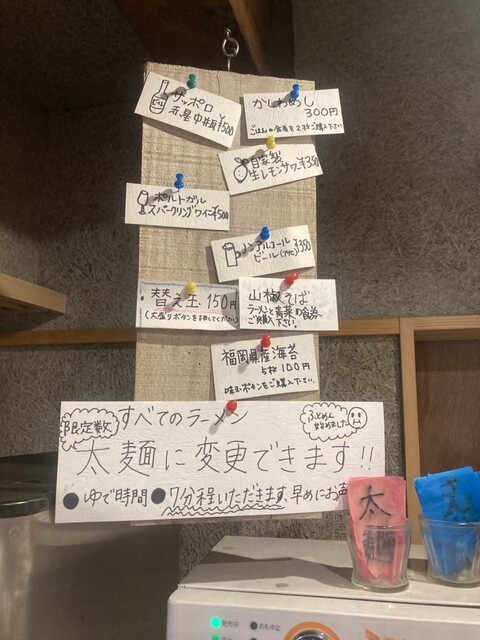 サッポロ
赤星中瓶¥500
かしわめし
300円
ごはんの食券を2枚ご購入下さい
自家製
生レモンサワー¥350
ポルトガル
スパークリングワイン¥500
ノンアルコール
ビール(アサヒ)¥350
替え玉 150円
(大盛りボタンを押してください)
山椒そば
ラーメンと青菜の食券
ご購入下さい。
福岡県産海苔
5枚 100円
味玉ボタンをご購入下さい。
限定数
すべてのラーメン
ふとめん
始めました
太麺に変更できます!!
●ゆで時間●7分程いただきます、早めにお声
太
発売中
お札中止